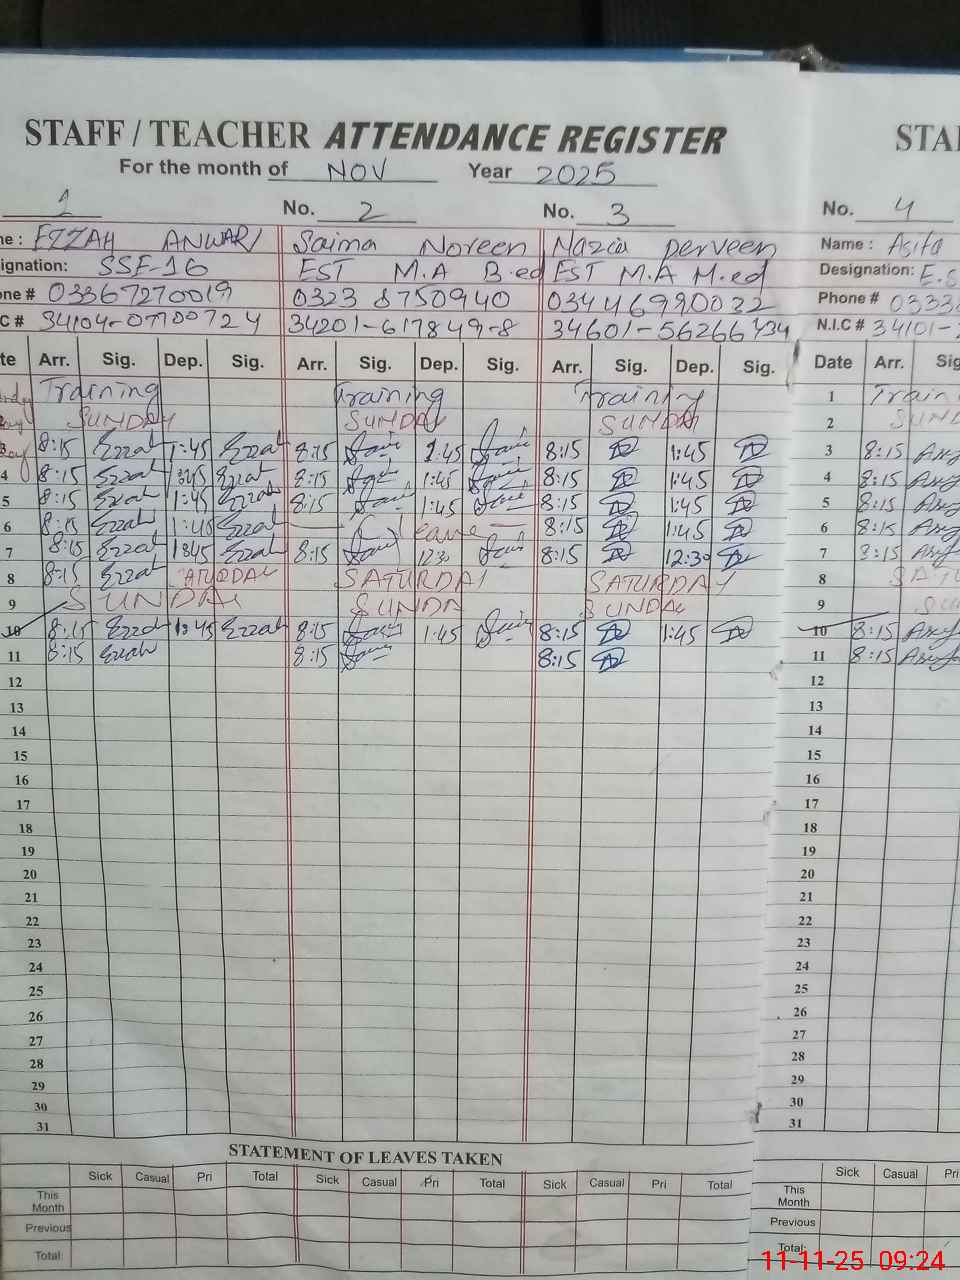 STAFF / TEACHER ATTENDANCE REGISTER
For the month of NOV Year 2025
1 No. 2 No. 3
me : EZZAH ANWAR Saima Noreen Nazia perveen
ignation: SSE-16 EST M.A B.ed EST M.A M.ed
one # 03367270019 0323 8750940 03446990032
C # 34201-617849-8
te Arr. Sig. Dep. Sig. Arr. Sig. Dep. Sig. Arr. Sig. Dep. Sig.
Training Training Training
SUNDAY SUNDAY SUNDAY
8:15 Ezzah 1:45 Ezzah 8:15 8:15 1:45
4 8:15 Ezzah Ezzah 8:15 1:45 8:15 1:45
5 8:15 Ezzah 1:45 Ezzah 8:15 1:45 8:15 1:45
6 8:15 Ezzah Ezzah leave 8:15 1:45
7 8:15 Ezzah Ezzah 8:15 12:30 8:15 12:30
8 8:15 Ezzah SATURDAY SATURDAY SATURDAY
9 SUNDAY SUNDA SUNDAY
10 8:15 Ezzah Ezzah 8:15 1:45 8:15 1:45
11 8:15 Ezzah 8:15 8:15
12
13
14
15
16
17
18
19
20
21
22
23
24
25
26
27
28
29
30
31
STATEMENT OF LEAVES TAKEN
Sick Casual Pri Total Sick Casual Pri Total Sick Casual Pri Total
This Month
Previous
Total
STA
No. 4
Name : Asifa
Designation: E.S
Phone # 0333
N.I.C # 34101-
Date Arr. Sig
1 Train
2 SUND
3 8:15
4 8:15
5 8:15
6 8:15
7 8:15
8 SATU
9 SU
10 8:15
11 8:15
12
13
14
15
16
17
18
19
20
21
22
23
24
25
26
27
28
29
30
31
Sick Casual Pri
This Month
Previous
Total:
11-11-25 09:24